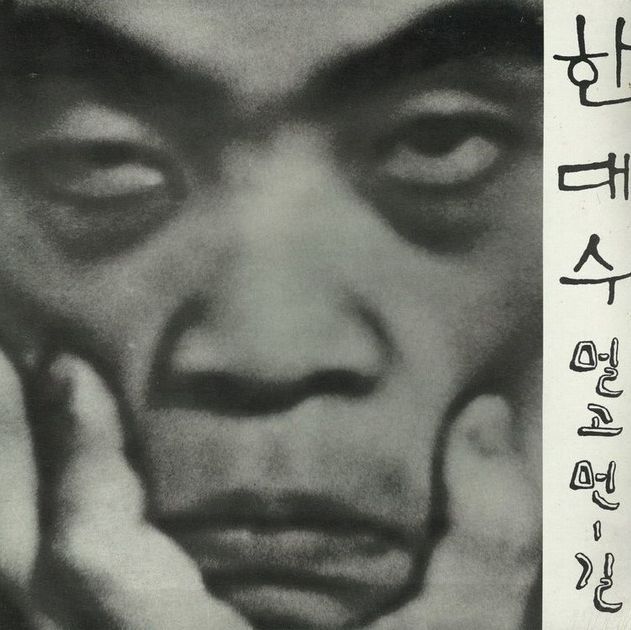 한대수
멀고 먼-길